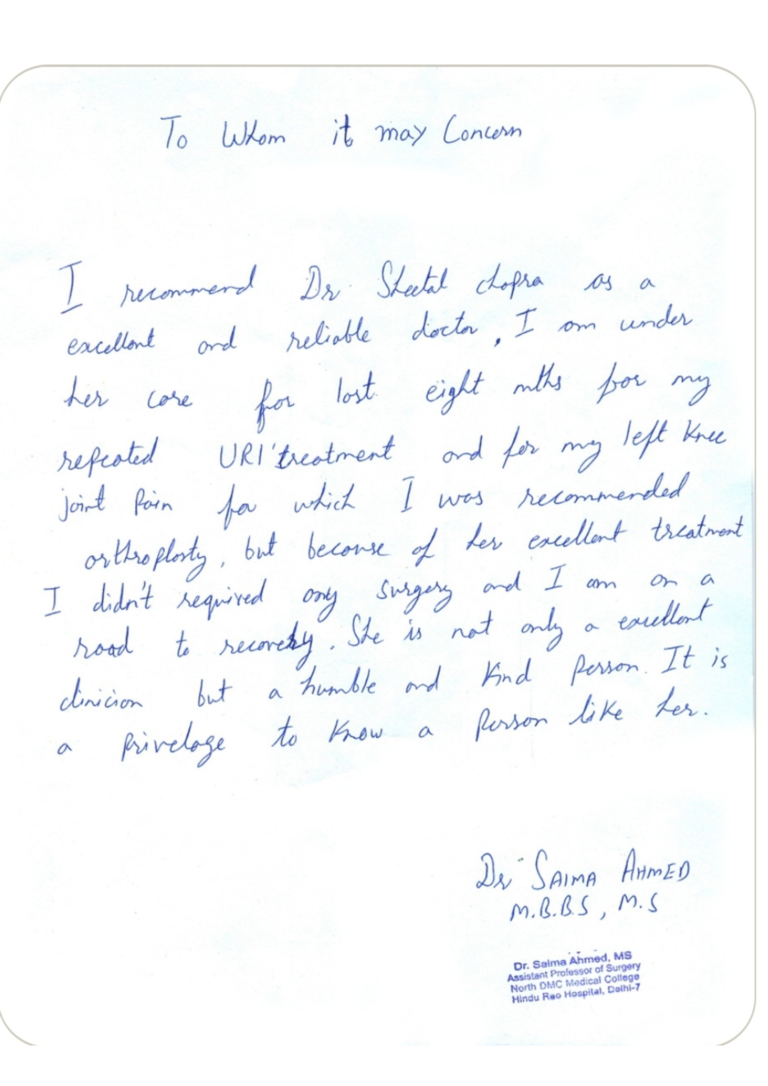 To Whom it may Concern
I recommend Dr. Sheetal chopra as a
excellent and reliable doctor, I am under
her care for last eight mths for my
repeated URI'treatment and for my left Knee
joint Pain for which I was recommended
orthroplasty, but because of her excellent treatment
I didn't required any surgery and I am on a
road to recovery. She is not only a excellent
clinician but a humble and Kind Person. It is
a Privelage to Know a Person like her.
Dr SAIMA AHMED
M.B.B.S, M.S
Dr. Saima Ahmed, MS
Assistant Professor of Surgery
North DMC Medical College
Hindu Rao Hospital, Delhi-7